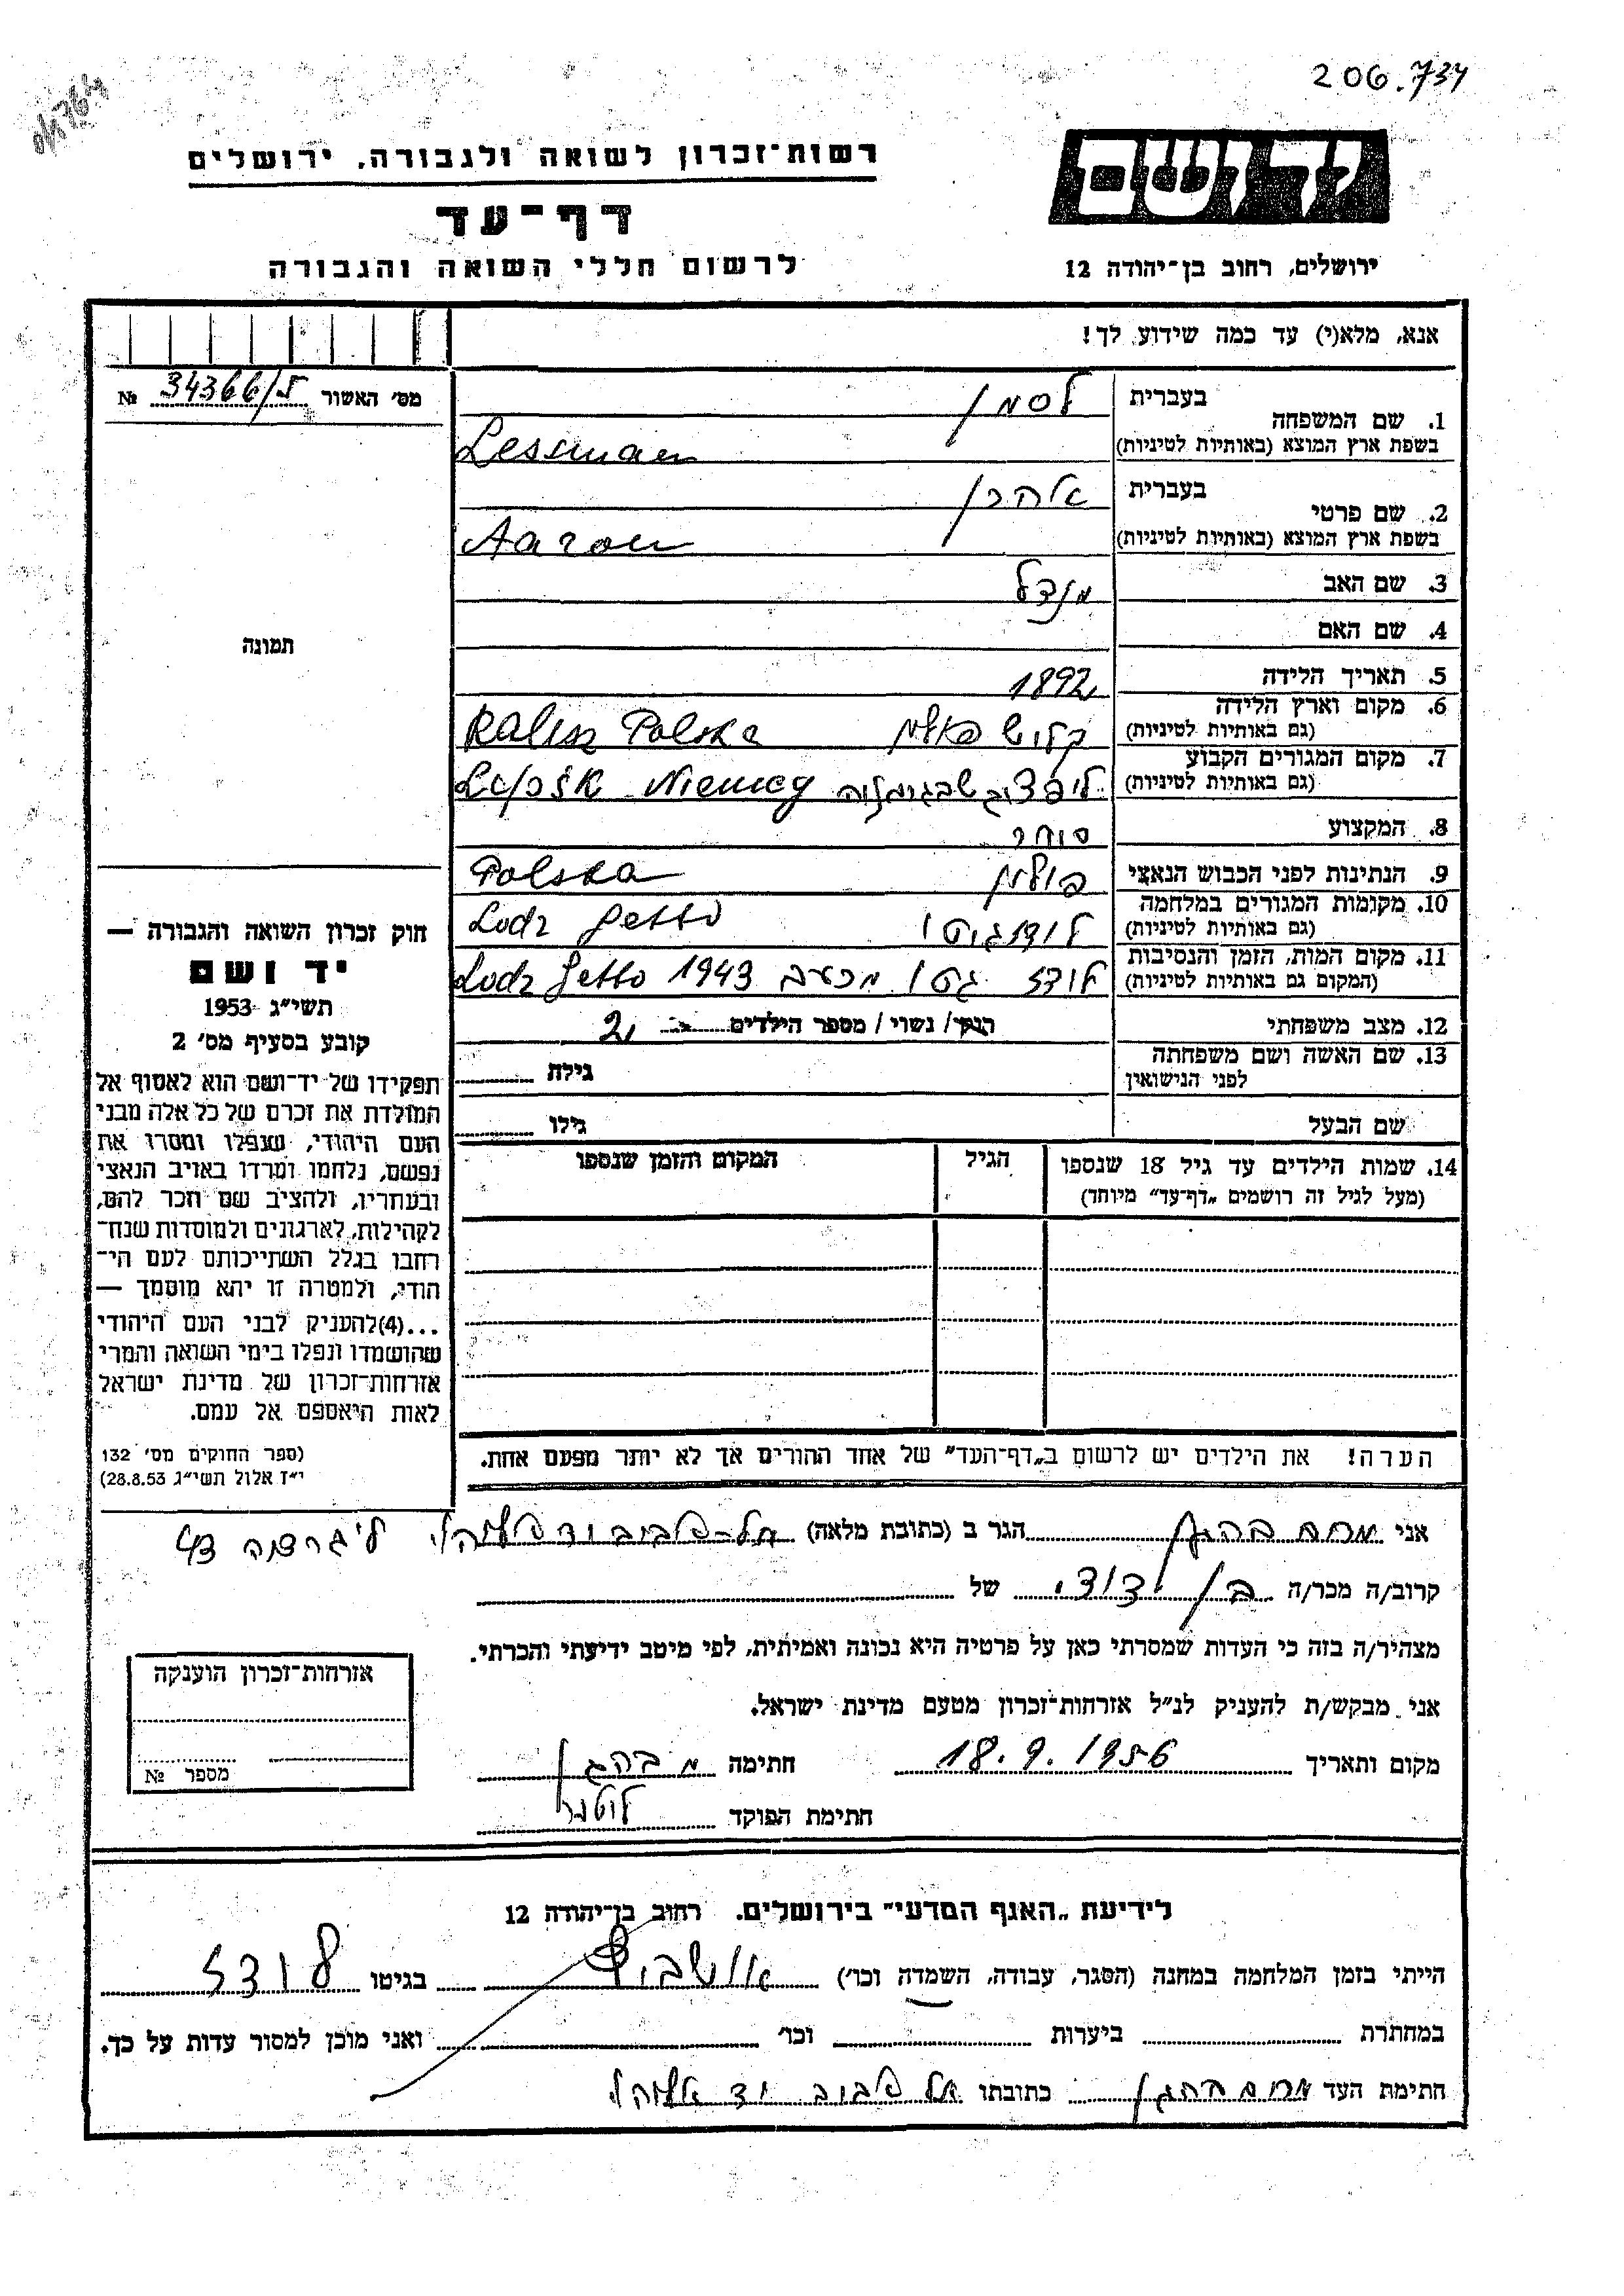 206.734
רשות־זכרון לשואה ולגבורה, ירושלים
יד ושם
דף־עד
לרשום חללי השואה והגבורה
ירושלים, רחוב בן־יהודה 12
אנא, מלא(י) עד כמה שידוע לך!
מס׳ האשור 34366/5 №
בעברית לסמן
1. שם המשפחה
בשפת ארץ המוצא (באותיות לטיניות) Lessman
בעברית אהרן
2. שם פרטי
בשפת ארץ המוצא (באותיות לטיניות) Aaron
3. שם האב מנדל
4. שם האם
5. תאריך הלידה 1892
6. מקום וארץ הלידה
(גם באותיות לטיניות) קליש פולין Kalisz Polska
7. מקום המגורים הקבוע
(גם באותיות לטיניות) ליפציג שבגרמניה Lajpsk Niemcy
8. המקצוע סוחר
9. הנתינות לפני הכבוש הנאצי פולין Polska
10. מקומות המגורים במלחמה
(גם באותיות לטיניות) לודז גיטו Lodz Getto
11. מקום המות, הזמן והנסיבות
(המקום גם באותיות לטיניות) לודז גטו מרעב 1943 Lodz Getto
12. מצב משפחתי רווק/ נשוי/ מספר הילדים 2
13. שם האשה ושם משפחתה
לפני הנישואין
גילה
שם הבעל גילו
14. שמות הילדים עד גיל 18 שנספו הגיל המקום והזמן שנספו
(מעל לגיל זה רושמים „דף־עד״ מיוחד)
הערה! את הילדים יש לרשום ב„דף־העד״ של אחד ההורים אך לא יותר מפעם אחת.
תמונה
חוק זכרון השואה והגבורה —
יד ושם
תשי״ג 1953
קובע בסעיף מס׳ 2
תפקידו של יד־ושם הוא לאסוף אל
המולדת את זכרם של כל אלה מבני
העם היהודי, שנפלו ומסרו את
נפשם, נלחמו ומרדו באויב הנאצי
ובעוזריו, ולהציב שם וזכר להם,
לקהילות, לארגונים ולמוסדות שנח־
רבו בגלל השתייכותם לעם הי־
הודי, ולמטרה זו יהא מוסמך —
...(4)להעניק לבני העם היהודי
שהושמדו ונפלו בימי השואה והמרי
אזרחות־זכרון של מדינת ישראל
לאות היאספם אל עמם.
(ספר החוקים מס׳ 132
י״ז אלול תשי״ג 28.8.53)
אני הגר ב (כתובת מלאה) 43
קרוב/ה מכר/ה בן דודי של
מצהיר/ה בזה כי העדות שמסרתי כאן על פרטיה היא נכונה ואמיתית, לפי מיטב ידיעתי והכרתי.
אני מבקש/ת להעניק לנ״ל אזרחות־זכרון מטעם מדינת ישראל.
מקום ותאריך 18.9.1956 חתימה
חתימת הפוקד
אזרחות־זכרון הוענקה
מספר №
לידיעת „האגף המדעי״ בירושלים, רחוב בן־יהודה 12
הייתי בזמן המלחמה במחנה (הסגר, עבודה, השמדה וכו׳) אושביץ בגיטו לודז
במחתרת ביערות וכו׳ ואני מוכן למסור עדות על כך.
חתימת העד כתובתו